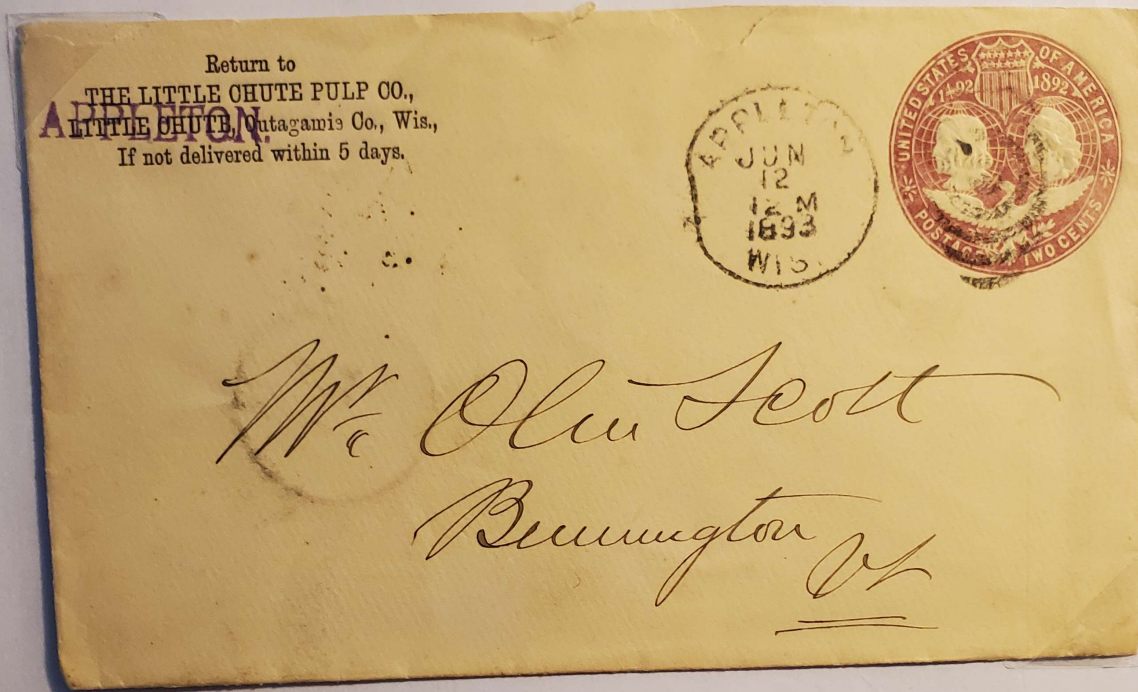 Return to
THE LITTLE CHUTE PULP CO.,
APPLETON.
LITTLE CHUTE, Outagamie Co., Wis.,
If not delivered within 5 days.
APPLETON
JUN
12
12 M
1893
WIS.
UNITED STATES OF AMERICA
1492 1892
POSTAGE TWO CENTS
Mr. Olin Scott
Bennington
Vt